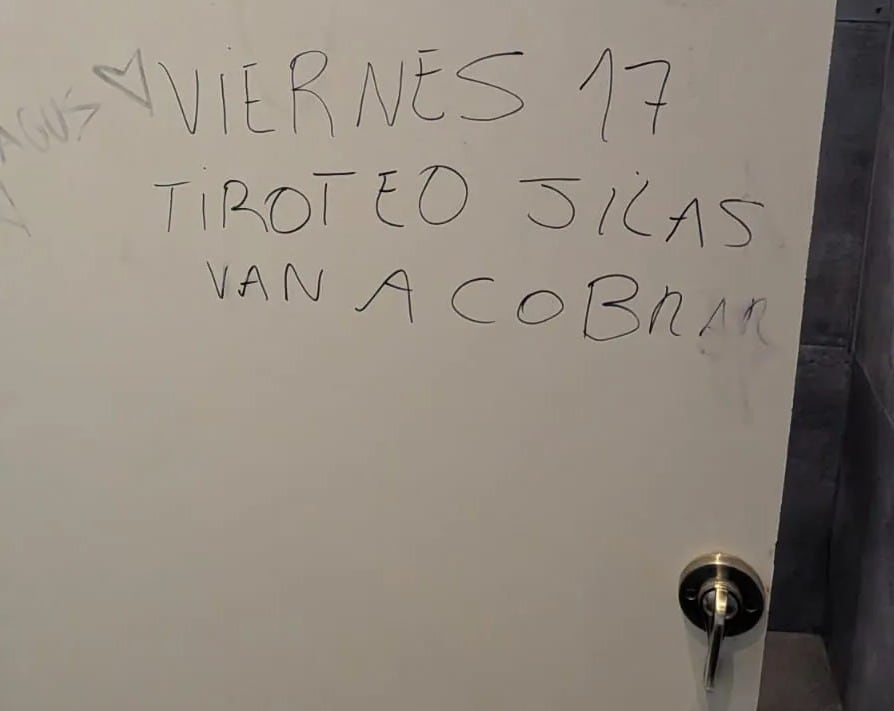 AGUS
VIERNES 17
TIROTEO JILAS
VAN A COBRAR